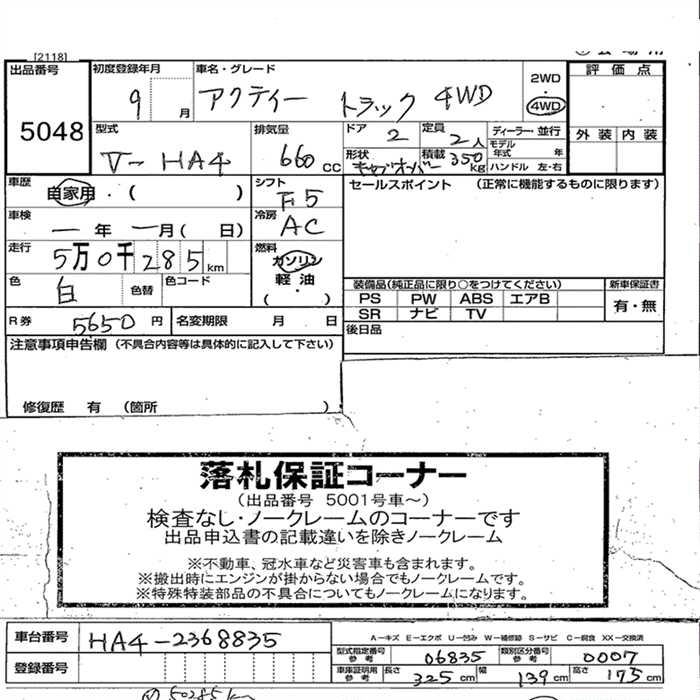 [2118]
出品番号
5048
初度登録年月
9 月
車名・グレード
アクティー トラック 4WD
2WD
4WD
評価点
外装 内装
型式
V-HA4
排気量
660 CC
ドア
2
定員
2人
ディーラー・並行
モデル
年式 年
形状
キャブオーバー
積載
350 kg
ハンドル 左・右
車歴
自家用・( )
シフト
F5
セールスポイント (正常に機能するものに限ります)
車検
一年一月( 日)
冷房
AC
走行
5万0千285km
燃料
ガソリン
軽油
( ・ )
色
白
色替
色コード
装備品(純正品に限り○をつけてください)
新車保証書
PS PW ABS エアB
SR ナビ TV
有・無
R券
5650円
名変期限 月 日
後日品
注意事項申告欄 (不具合内容等は具体的に記入して下さい)
修復歴 有 (箇所 )
落札保証コーナー
(出品番号 5001号車~)
検査なし・ノークレームのコーナーです
出品申込書の記載違いを除きノークレーム
※不動車、冠水車など災害車も含まれます。
※搬出時にエンジンが掛からない場合でもノークレームです。
※特殊特装部品の不具合についてもノークレームになります。
車台番号
HA4-2368835
A-キズ E-エクボ U-凹み W-補修跡 S-サビ C-腐食 XX-交換済
型式指定番号
参考
06835
類別区分番号
参考
0007
登録番号
車庫証明用
参考
長さ
325cm
幅
139cm
高さ
175cm
50285km